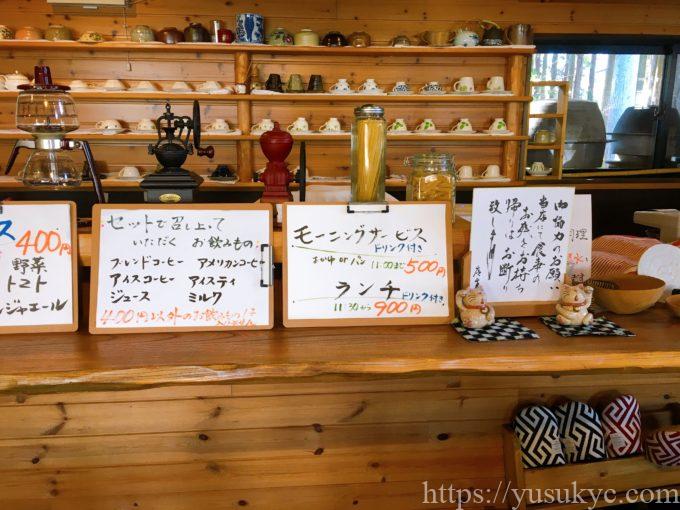 ス
400円
野菜
トマト
ンジャエール
セットで召し上って
いただく お飲みもの
ブレンドコーヒー アメリカンコーヒー
アイスコーヒー アイスティ
ジュース ミルク
400円以外のお飲みもの
モーニングサービス
ドリンク付き
おかゆ or パン 11:00まで 500円
ランチ ドリンク付き
11:30から 900円
御協力のお願い
当店にて食事の
お後をお持ち
帰りはお断り
致します
料理
https://yusukyc.com